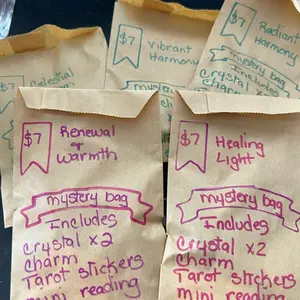 $7
Vibrant
Harmony
mystery bag
$7
Radiant
Harmony
mystery bag
Includes
Crystal
Charm
Celestial
$7
Renewal
& Warmth
mystery bag
Includes
Crystal x2
Charm
Tarot stickers
mini reading
$7
Healing
Light
mystery bag
Includes
Crystal x2
Charm
Tarot stickers
mini reading